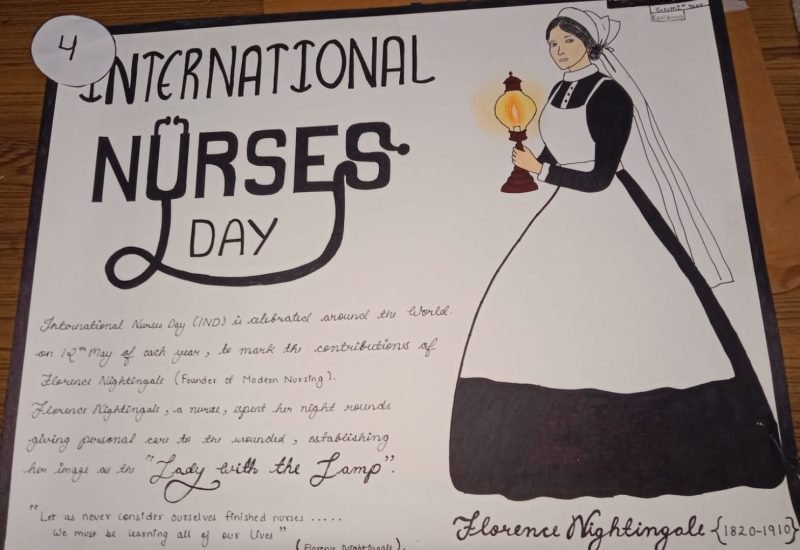 4
INTERNATIONAL
NURSES
DAY
International Nurses Day (IND) is celebrated around the World
on 12th May of each year, to mark the contributions of
Florence Nightingale (Founder of Modern Nursing).
Florence Nightingale, a nurse, spent her night rounds
giving personal care to the wounded, establishing
her image as the "Lady with the Lamp".
"Let us never consider ourselves finished nurses .....
We must be learning all of our lives"
(Florence Nightingale).
Florence Nightingale {1820-1910}
Year